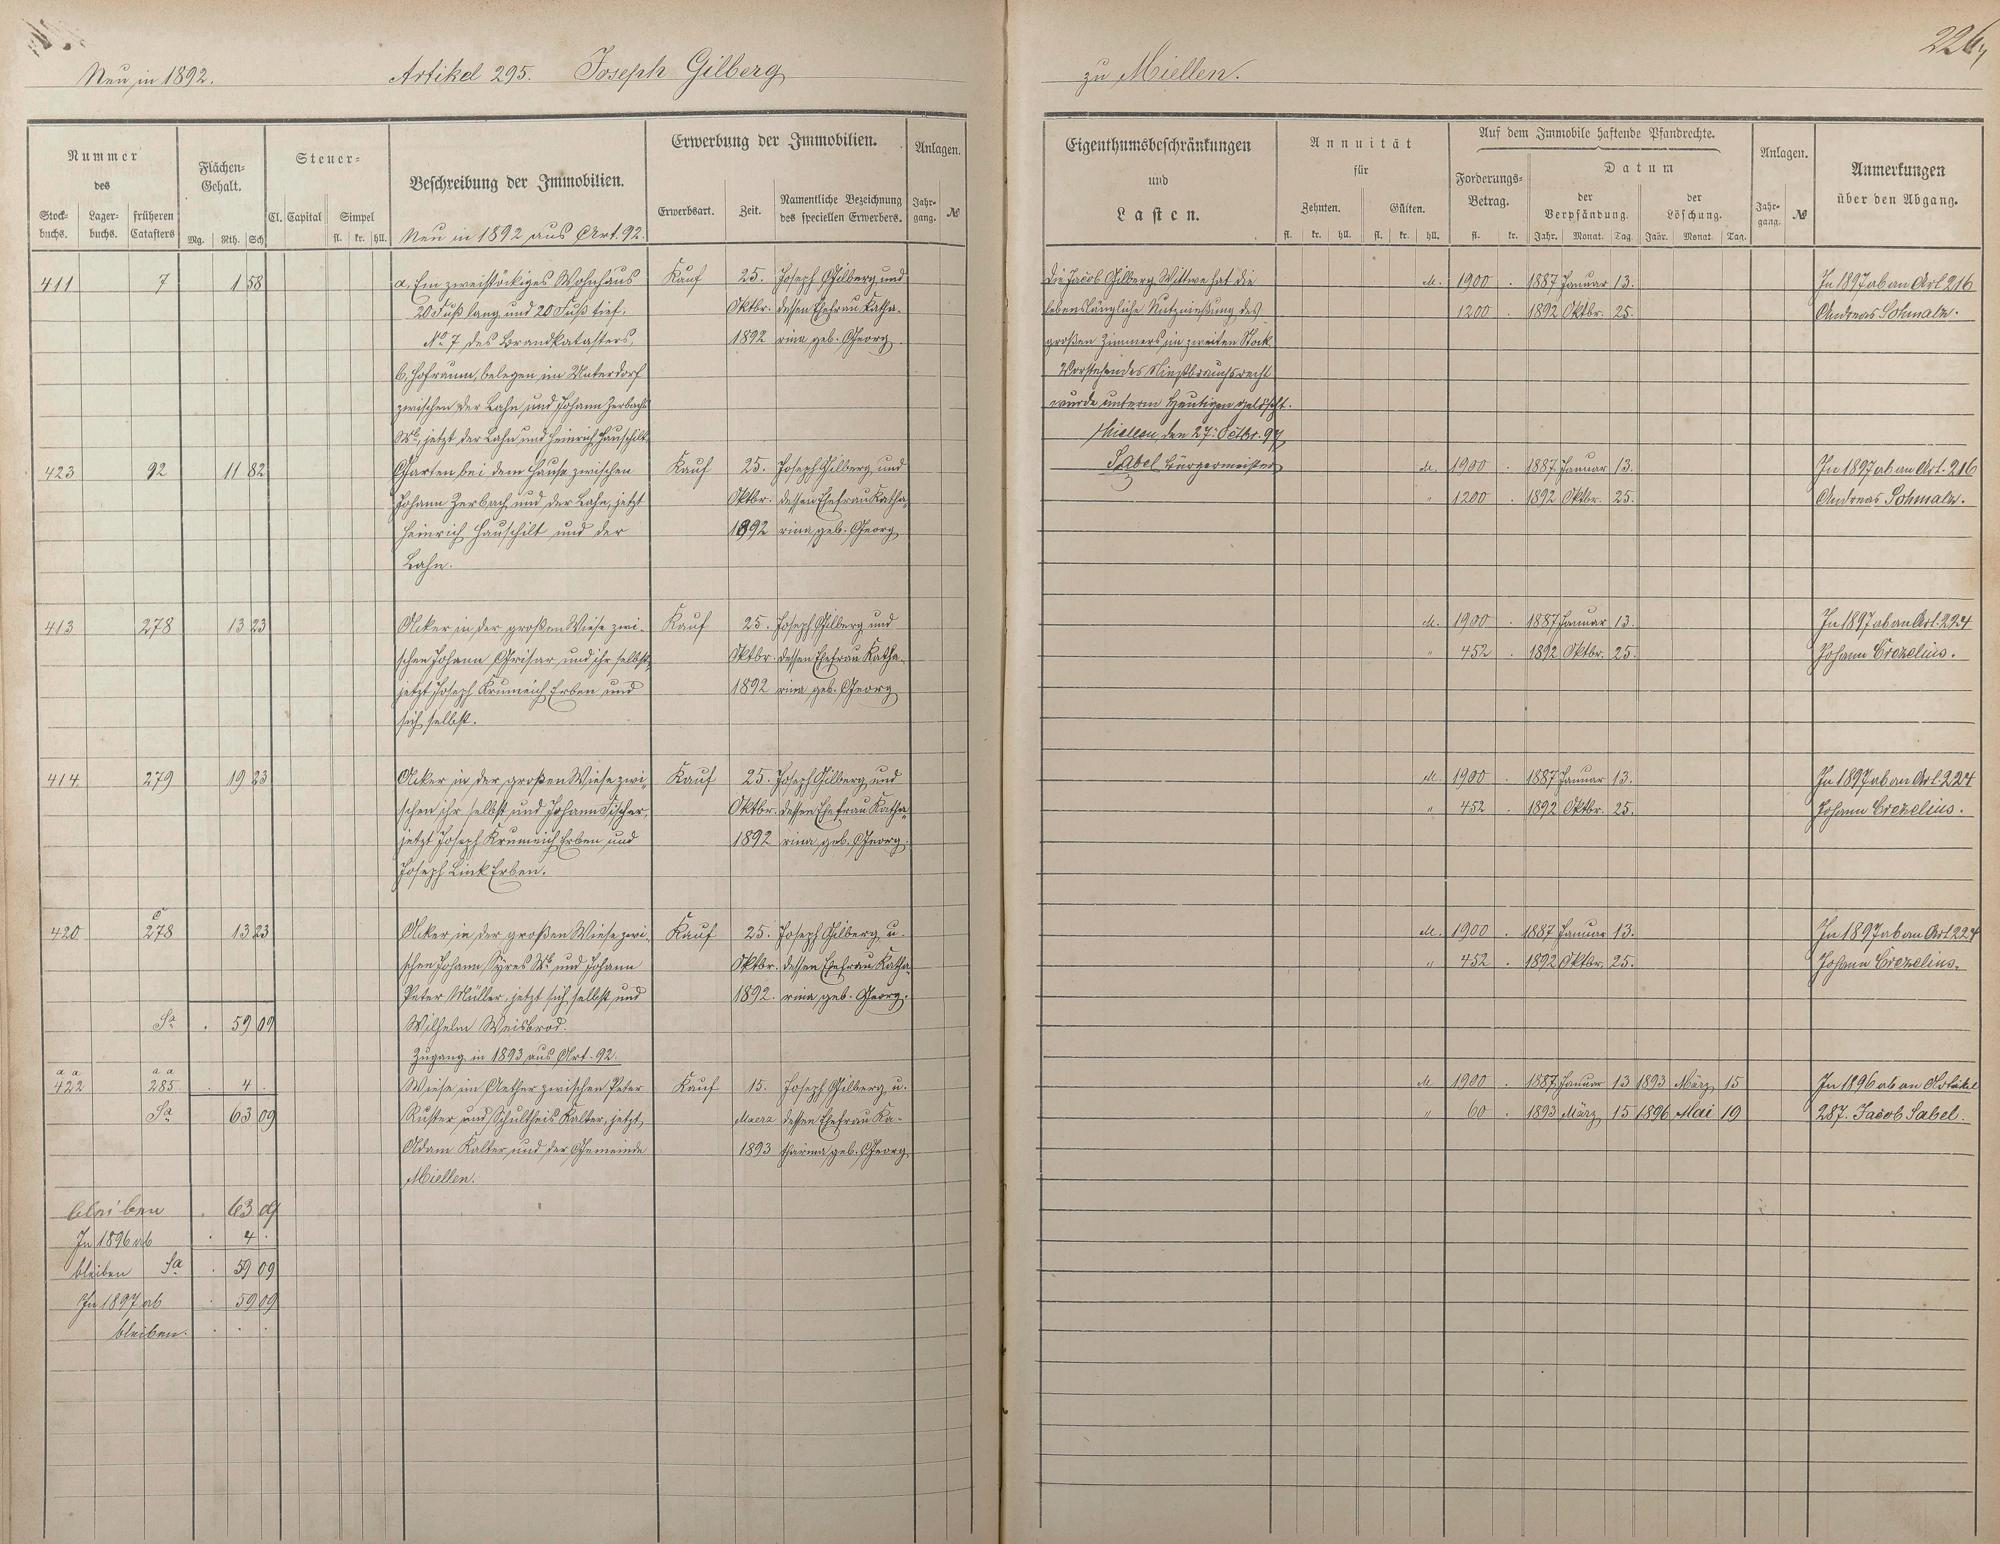 226,
Neu in 1892.
Artikel 295. Joseph Gilberg
zu Miellen.
Nummer
des
Stock-
buchs.
Lager-
buchs.
früheren
Catasters
Flächen-
Gehalt.
Mg. Rth. Sch
Steuer-
Cl. Capital Simpel
fl. kr. hll.
Beschreibung der Immobilien.
Neu in 1892 aus Art. 92.
Erwerbung der Immobilien.
Erwerbsart. Zeit.
Namentliche Bezeichnung
des speciellen Erwerbers.
Anlagen.
Jahr-
gang. №
Eigenthumsbeschränkungen
und
Lasten.
Annuität
für
Zehnten. Gülten.
fl. kr. hll. fl. kr. hll.
Auf dem Immobile haftende Pfandrechte.
Forderungs-
Betrag.
fl. kr.
Datum
der
Verpfändung.
der
Löschung.
Jahr. Monat. Tag. Jahr. Monat. Tag.
Anlagen.
Jahr-
gang. №
Anmerkungen
über den Abgang.
411 7 1 58
a, Ein zweistöckiges Wohnhaus
20 Fuß lang und 20 Fuß tief.
No 7 des Brandkatasters,
b, Hofraum, belegen im Unterdorf
zwischen der Lahn und Johann Zerbachs
Wb, jetzt der Lahn und Heinrich Hauschilt
Kauf
25.
Oktbr.
1892
Joseph Gilberg und
dessen Ehefrau Katha-
rina geb. Georg
Die Jacob Gilberg Wittwe hat die
lebenslängliche Nutznießung des
großen Zimmers im zweiten Stock
Vorstehendes Nießbrauchsrecht
wurde unterm Heutigen gelöscht.
Miellen, den 27. Octbr. 97
Sabel Bürgermeister
M. 1900 . 1887 Januar 13.
1200 . 1892 Oktbr. 25.
In 1897 ab an Art 216
Andreas Schmalz.
423 92 11 82
Garten bei dem Hause zwischen
Johann Zerbach und der Lahn, jetzt
Heinrich Hauschilt und der
Lahn.
Kauf
25.
Oktbr.
1892
Joseph Gilberg und
dessen Ehefrau Katha-
rina geb. Georg
M. 1900 . 1887 Januar 13.
" 1200 . 1892 Oktbr. 25.
In 1897 ab an Art. 216
Andreas Schmalz.
413 278 13 23
Acker in der großen Wiese zwi-
schen Johann Grisar und ihr selbst,
jetzt Joseph Krumeich Erben und
sich selbst.
Kauf
25.
Oktbr.
1892
Joseph Gilberg und
dessen Ehefrau Katha-
rina geb. Georg
M. 1900 . 1887 Januar 13.
" 452 . 1892 Oktbr. 25.
In 1897 ab an Art. 224
Johann Crezelius.
414. 279 19 23
Acker in der großen Wiese zwi-
schen ihr selbst und Johann Fischer,
jetzt Joseph Krumeich Erben und
Joseph Link Erben.
Kauf
25.
Oktbr.
1892
Joseph Gilberg und
dessen Ehefrau Katha-
rina, geb. Georg.
M 1900 . 1887 Januar 13.
" 452 . 1892 Oktbr. 25.
In 1897 ab an Art. 224
Johann Crezelius.
c
420 278 13 23
Acker in der großen Wiese zwi-
schen Johann Syres Wb und Johann
Peter Müller, jetzt sich selbst und
Wilhelm Weisbrod.
Kauf
25.
Oktbr.
1892.
Joseph Gilberg u.
dessen Ehefrau Katha
rina, geb. Georg.
M. 1900 . 1887 Januar 13.
" 452 . 1892 Oktbr. 25.
In 1897 ab an Art 224
Johann Crezelius.
Sa . 59 09
Zugang in 1893 aus Art. 92.
a a a a
422 285 . 4 .
Wiese im Aether zwischen Peter
Ruster und Schultheis Kalter, jetzt
Adam Kalter und der Gemeinde
Miellen.
Kauf
15.
Maerz
1893
Joseph Gilberg u.
dessen Ehefrau Ka-
tharina, geb. Georg.
M 1900 . 1887 Januar 13 1893 März 15
" 60 . 1893 März 15 1896 Mai 19
In 1896 ab an Artikel
287. Jacob Sabel.
Sa 63 09
bleiben . 63 09
In 1896 ab . 4 .
bleiben Sa . 59 09
In 1897 ab . 59 09
bleiben. . . .